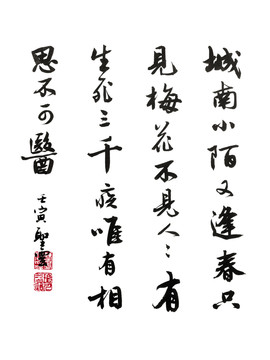 城南小陌又逢春只
見梅花不見人〻有
生死三千疾唯有相
思不可醫
壬寅聖澤